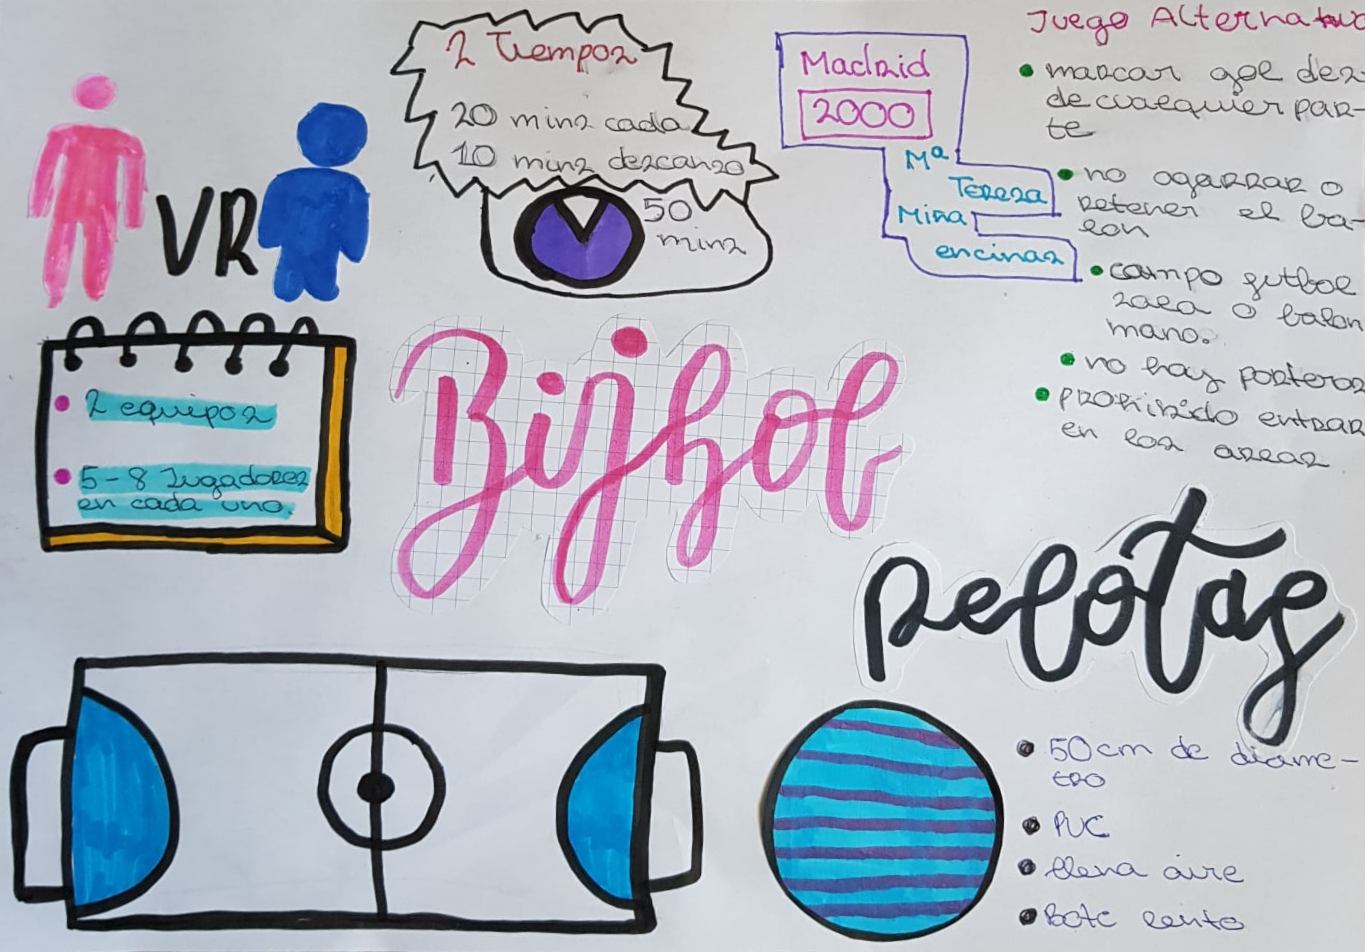 2 Tiempos
20 mins cada
10 mins descanso
50
mins
Madrid
2000
Mª
Teresa
Mira
encinas
Juego Alternativo
• marcar gol des-
de cualquier par-
te
• no agarrar o
retener el ba-
lon
• campo futbol
sala o balon
mano.
• no hay porteros
• prohibido entrar
en las areas
VR
• 2 equipos
• 5-8 Jugadores
en cada uno.
Bijbol
pelotas
• 50cm de diame-
tro
• PVC
• llena aire
• Bote lento